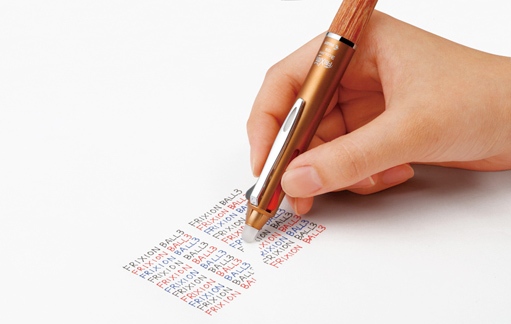 FRIXION BALL3
FRIXION BALL3
FRIXION BALL3
FRIXION BALL3
FRIXION BALL3
FRIXION BALL3
FRIXION BALL3
FRIXION BA
FRIXION BALL3
FRIXION BALL3
FRIXION
FRIXION
FRIXION BALL3
FRIXION BALL3